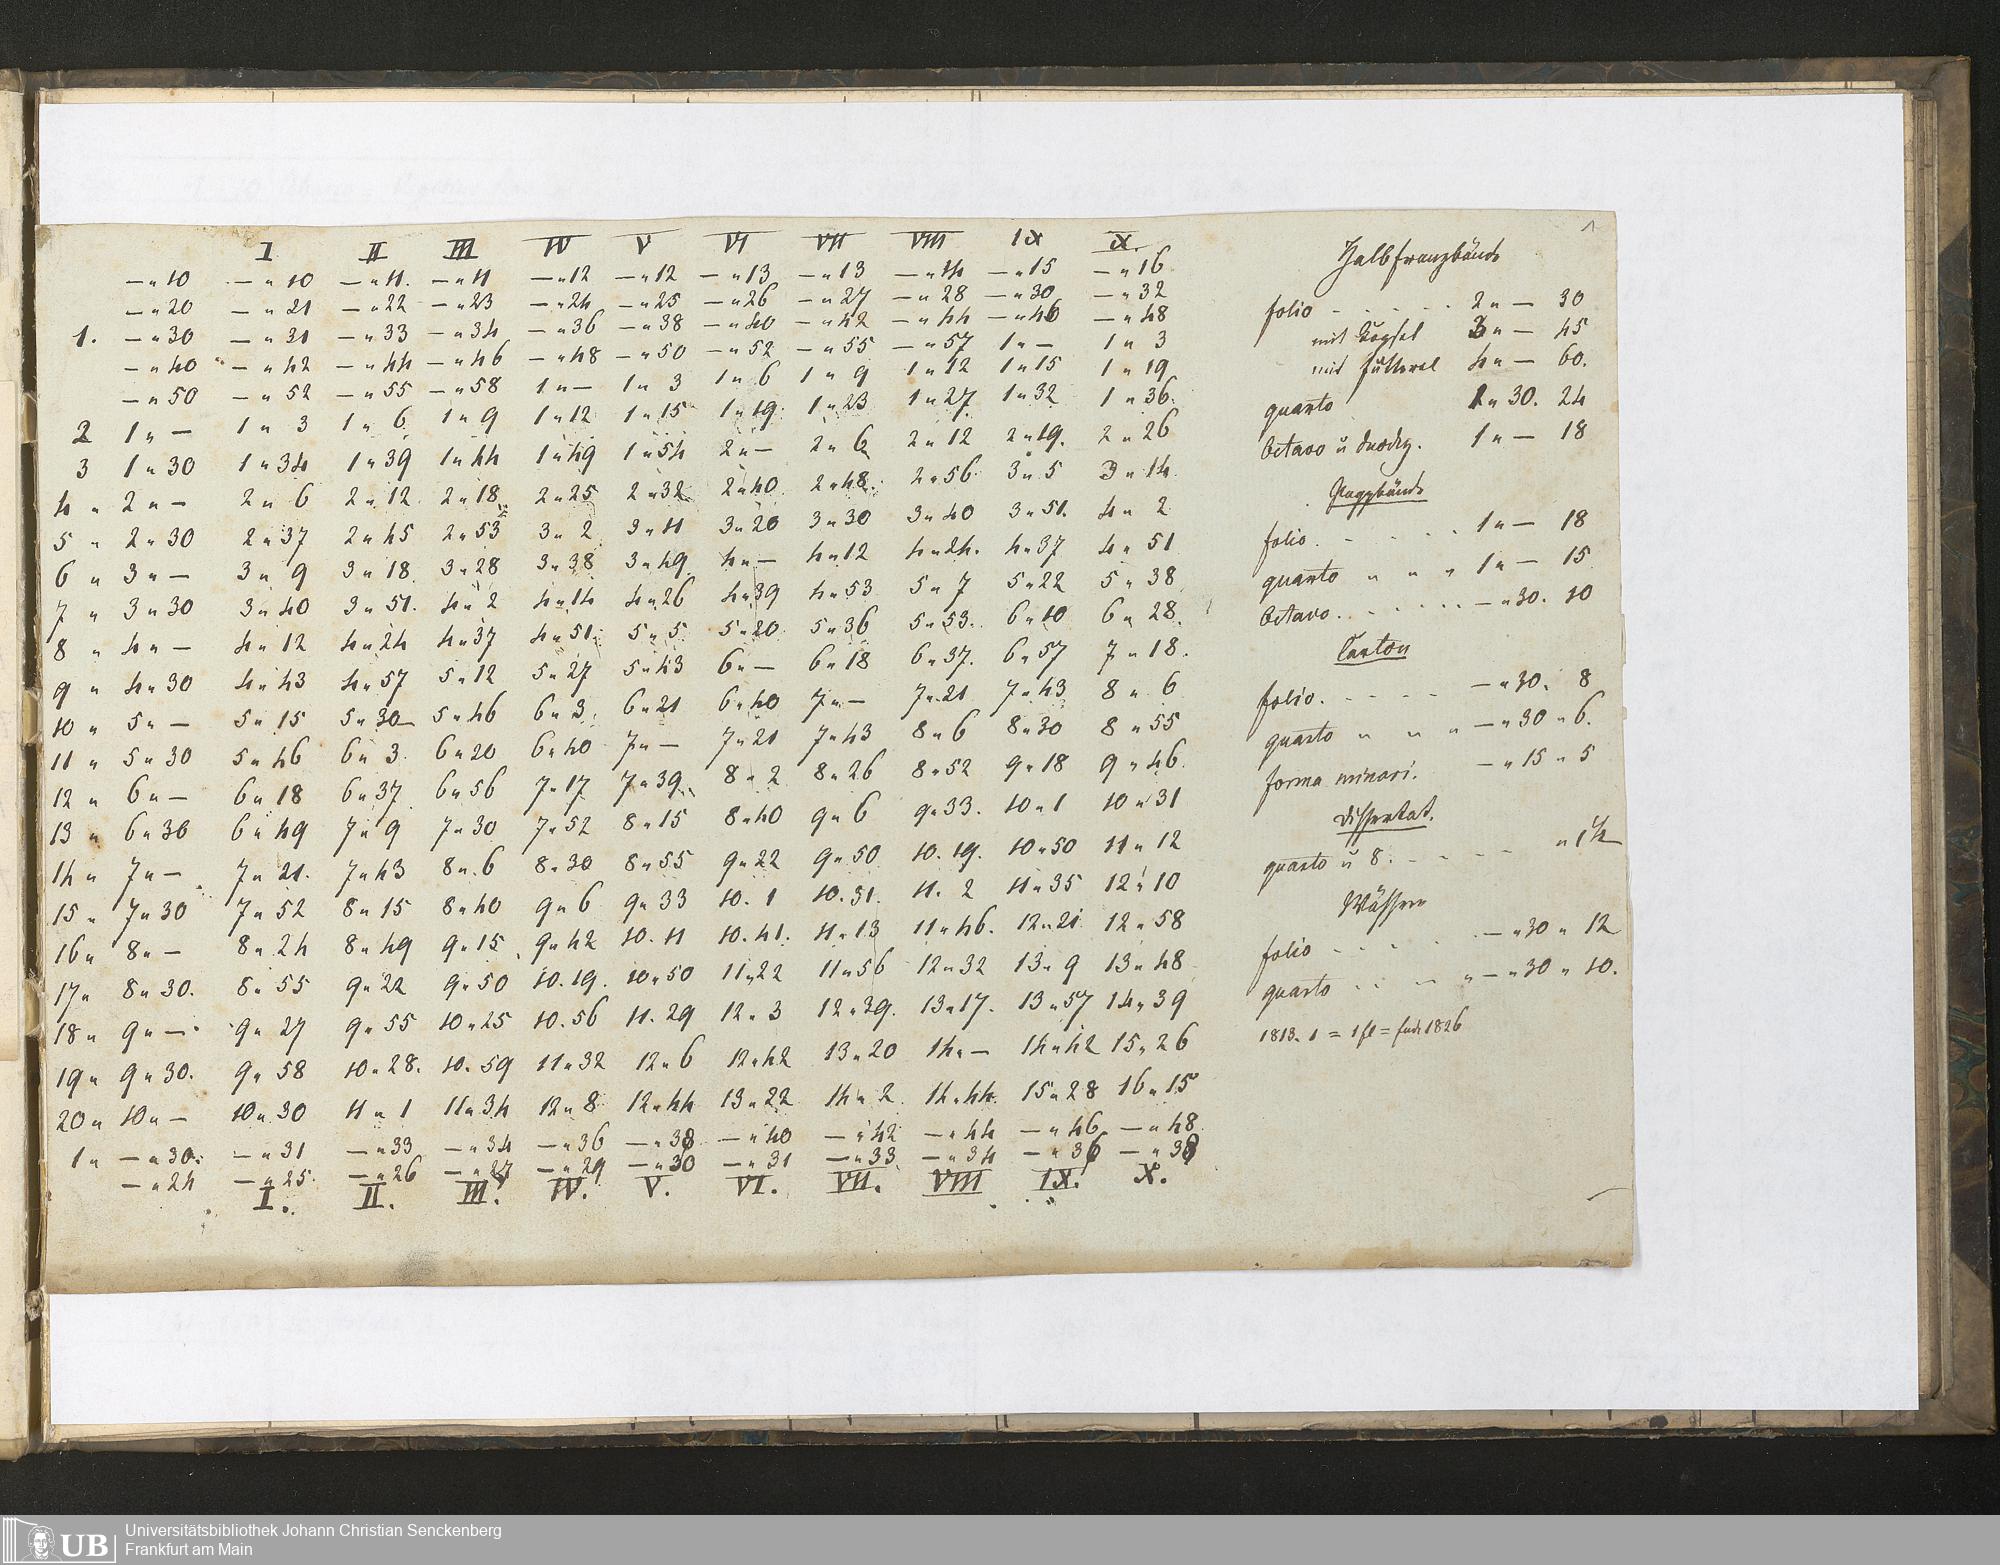 I II III IV V VI VII VIII IX X.
— " 10 — " 10 — " 11. — " 11 — " 12 — " 12 — " 13 — " 13 — " 14 — " 15 — " 16
— " 20 — " 21 — " 22 — " 23 — " 24 — " 25 — " 26 — " 27 — " 28 — " 30 — " 32
1. — " 30 — " 31 — " 33 — " 34 — " 36 — " 38 — " 40 — " 42 — " 44 — " 46 — " 48
— " 40 — " 42 — " 44 — " 46 — " 48 — " 50 — " 52 — " 55 — " 57 1 " — 1 " 3
— " 50 — " 52 — " 55 — " 58 1 " — 1 " 3 1 " 6 1 " 9 1 " 12 1 " 15 1 " 19
2 1 " — 1 " 3 1 " 6 1 " 9 1 " 12 1 " 15 1 " 19 1 " 23 1 " 27 1 " 32 1 " 36.
3 1 " 30 1 " 34 1 " 39 1 " 44 1 " 49 1 " 54 2 " — 2 " 6 2 " 12 2 " 19. 2 " 26
4 " 2 " — 2 " 6 2 " 12 2 " 18 2 " 25 2 " 32 2 " 40 2 " 48. 2 " 56 3 " 5 3 " 14
5 " 2 " 30 2 " 37 2 " 45 2 " 53 3 " 2 3 " 11 3 " 20 3 " 30 3 " 40 3 " 51. 4 " 2
6 " 3 " — 3 " 9 3 " 18 3 " 28 3 " 38 3 " 49 4 " — 4 " 12 4 " 24. 4 " 37 4 " 51
7 " 3 " 30 3 " 40 3 " 51. 4 " 2 4 " 14 4 " 26 4 " 39 4 " 53 5 " 7 5 " 22 5 " 38
8 " 4 " — 4 " 12 4 " 24 4 " 37 4 " 51 5 " 5 5 " 20 5 " 36 5 " 53. 6 " 10 6 " 28.
9 " 4 " 30 4 " 43 4 " 57 5 " 12 5 " 27 5 " 43 6 " — 6 " 18 6 " 37. 6 " 57 7 " 18.
10 " 5 " — 5 " 15 5 " 30 5 " 46 6 " 3 6 " 21 6 " 40 7 " — 7 " 21 7 " 43 8 " 6
11 " 5 " 30 5 " 46 6 " 3 6 " 20 6 " 40 7 " — 7 " 21 7 " 43 8 " 6 8 " 30 8 " 55
12 " 6 " — 6 " 18 6 " 37 6 " 56 7 " 17 7 " 39 8 " 2 8 " 26 8 " 52 9 " 18 9 " 46
13 " 6 " 30 6 " 49 7 " 9 7 " 30 7 " 52 8 " 15 8 " 40 9 " 6 9 " 33. 10 " 1 10 " 31
14 " 7 " — 7 " 21. 7 " 43 8 " 6 8 " 30 8 " 55 9 " 22 9 " 50 10. 19. 10 " 50 11 " 12
15 " 7 " 30 7 " 52 8 " 15 8 " 40 9 " 6 9 " 33 10. 1 10. 31. 11. 2 11 " 35 12 " 10
16 " 8 " — 8 " 24 8 " 49 9 " 15 9 " 42 10. 11 10. 41. 11 " 13 11 " 46. 12 " 21 12 " 58
17 " 8 " 30. 8 " 55 9 " 22 9 " 50 10. 19. 10 " 50 11 " 22 11 " 56 12 " 32 13 " 9 13 " 48
18 " 9 " — 9 " 27 9 " 55 10 " 25 10. 56 11. 29 12 " 3 12 " 39. 13 " 17. 13 " 57 14 " 39
19 " 9 " 30. 9 " 58 10 " 28. 10. 59 11 " 32 12 " 6 12 " 42 13 " 20 14 " — 14 " 42 15 " 26
20 " 10 " — 10 " 30 11 " 1 11 " 34 12 " 8 12 " 44 13 " 22 14 " 2 14 " 44 15 " 28 16 " 15
1 " — " 30. — " 31 — " 33 — " 34 — " 36 — " 38 — " 40 — " 42 — " 44 — " 46 — " 48
— " 24 — " 25 — " 26 — " 27 — " 29 — " 30 — " 31 — " 33 — " 34 — " 36 — " 38
I. II. III. IV. V. VI. VII. VIII IX. X.
1
Halbfranzbände
folio . . . . 2 " — 30
mit Kapsel 3 " — 45
mit Futteral 4 " — 60.
quarto 1 " 30. 24
Octavo u duodez. 1 " — 18
Pappbände
folio . . . . . 1 " — 18
quarto " " " 1 " — 15
Octavo . . . . . . — " 30. 10
Carton
folio. . . . . — " 30. 8
quarto " " " — " 30 " 6.
forma minori. — " 15 " 5
Dissertat.
quarto u 8. . . . . " 1½
folio . . . . . — " 30 " 12
quarto . . . " — " 30 " 10.
UB Universitätsbibliothek Johann Christian Senckenberg
Frankfurt am Main